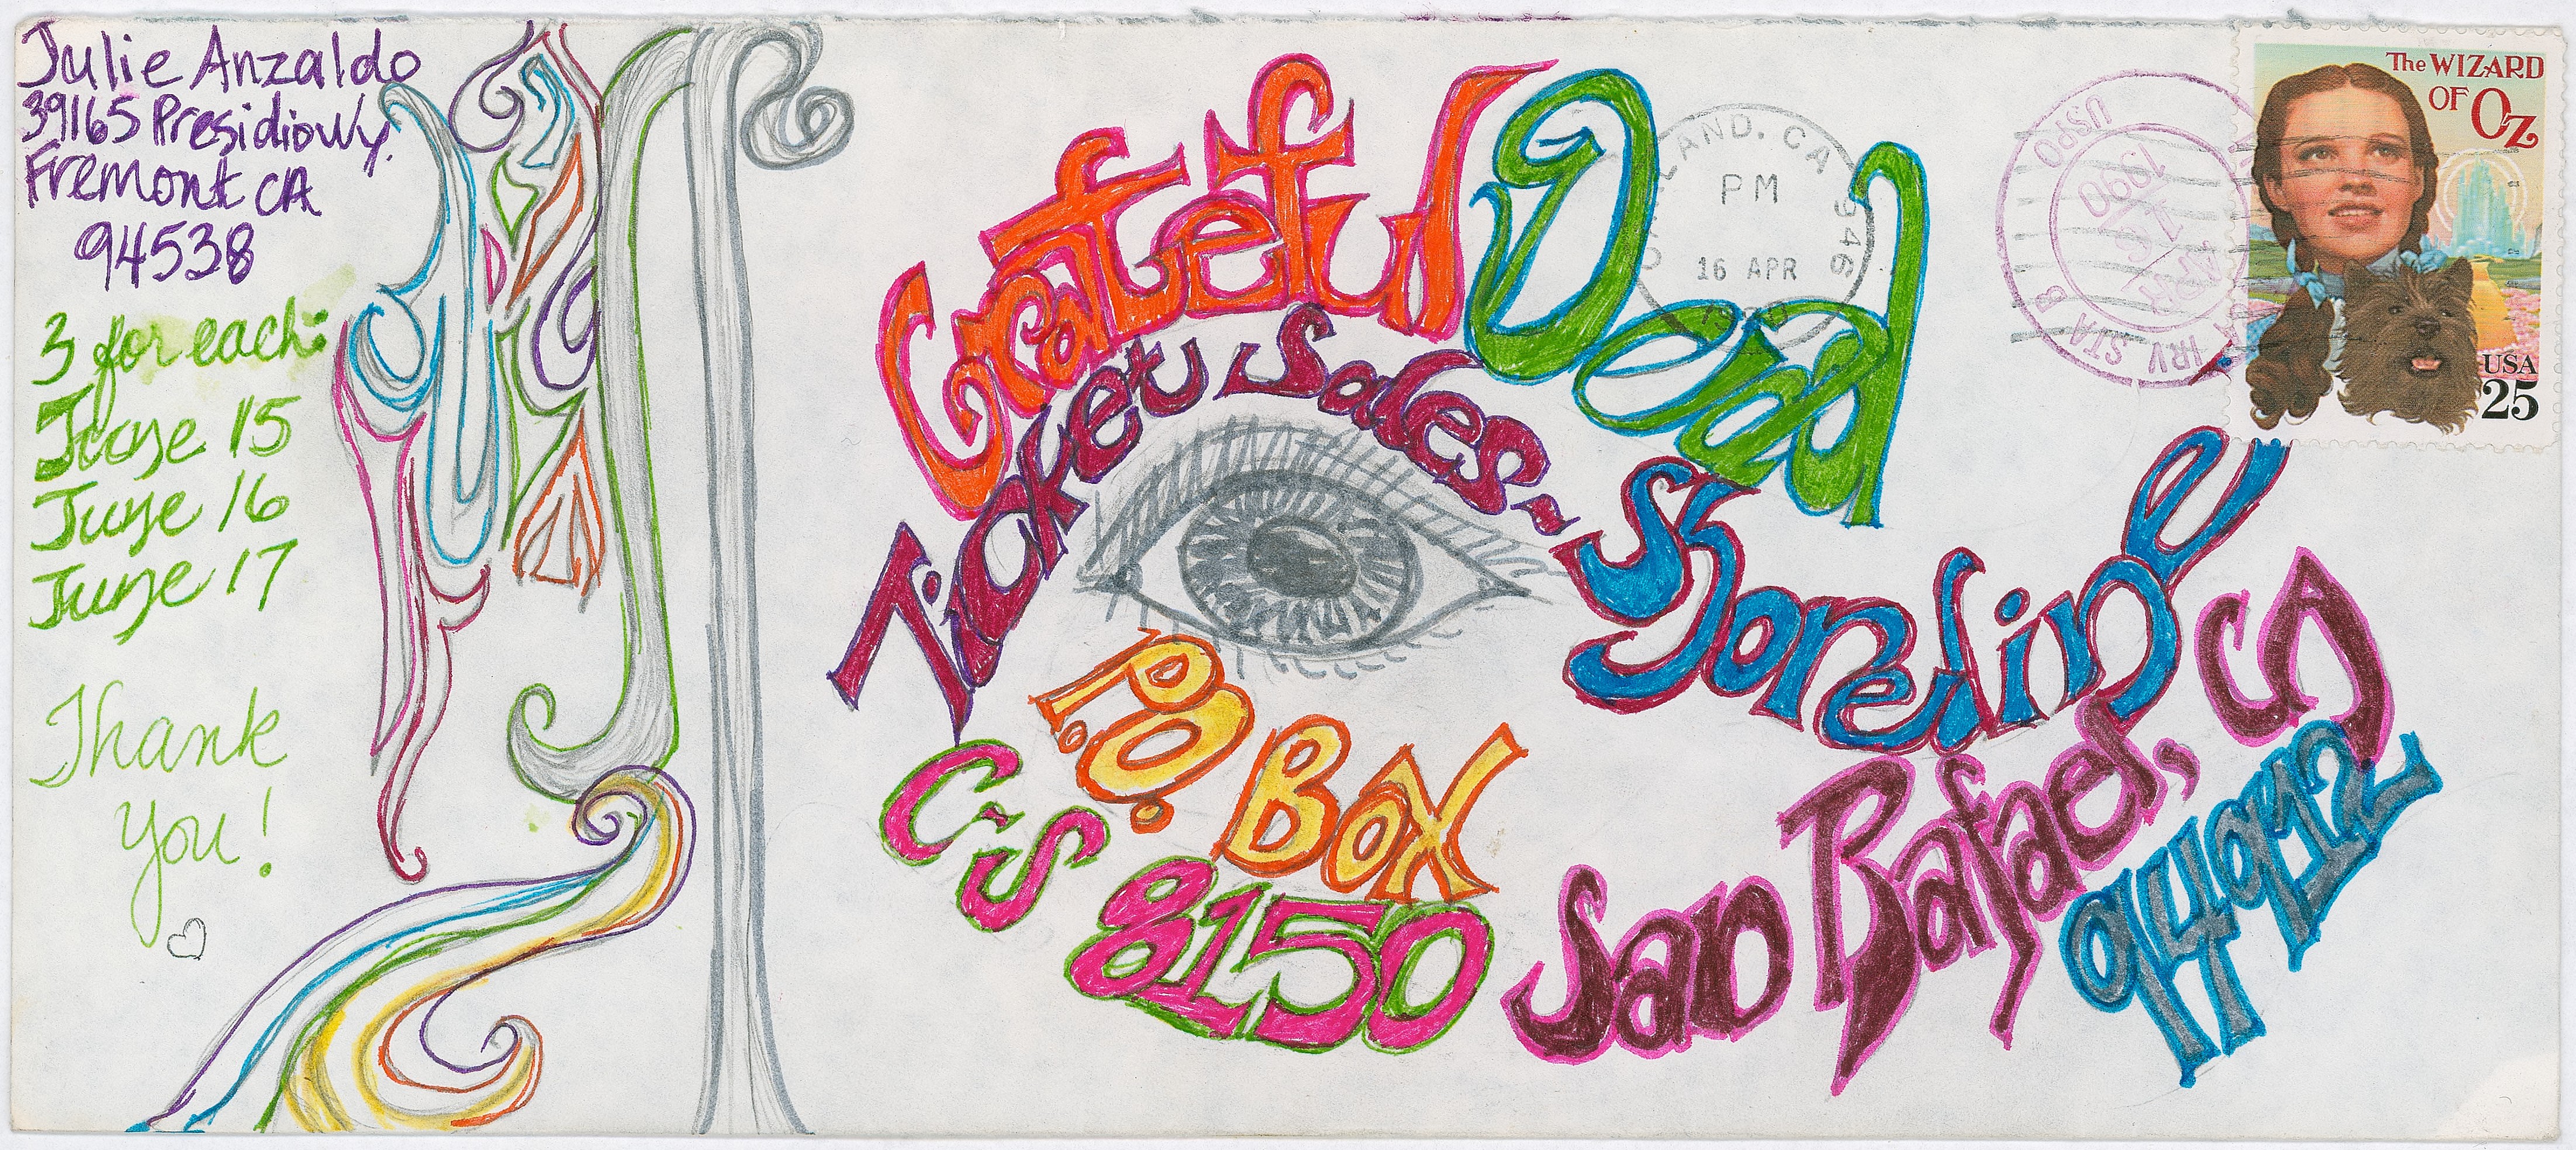 Julie Anzaldo
39165 Presidio Wy.
Fremont CA
94538
3 for each:
June 15
June 16
June 17
Thank
you!
Grateful Dead
Ticket Sales~ Shoreline
P.O. Box
C-S 8150
San Rafael, CA
94912
LAND, CA 946
PM
16 APR
1990
USPO
APR
16
1990
IRV STA B
The WIZARD
OF OZ
USA
25